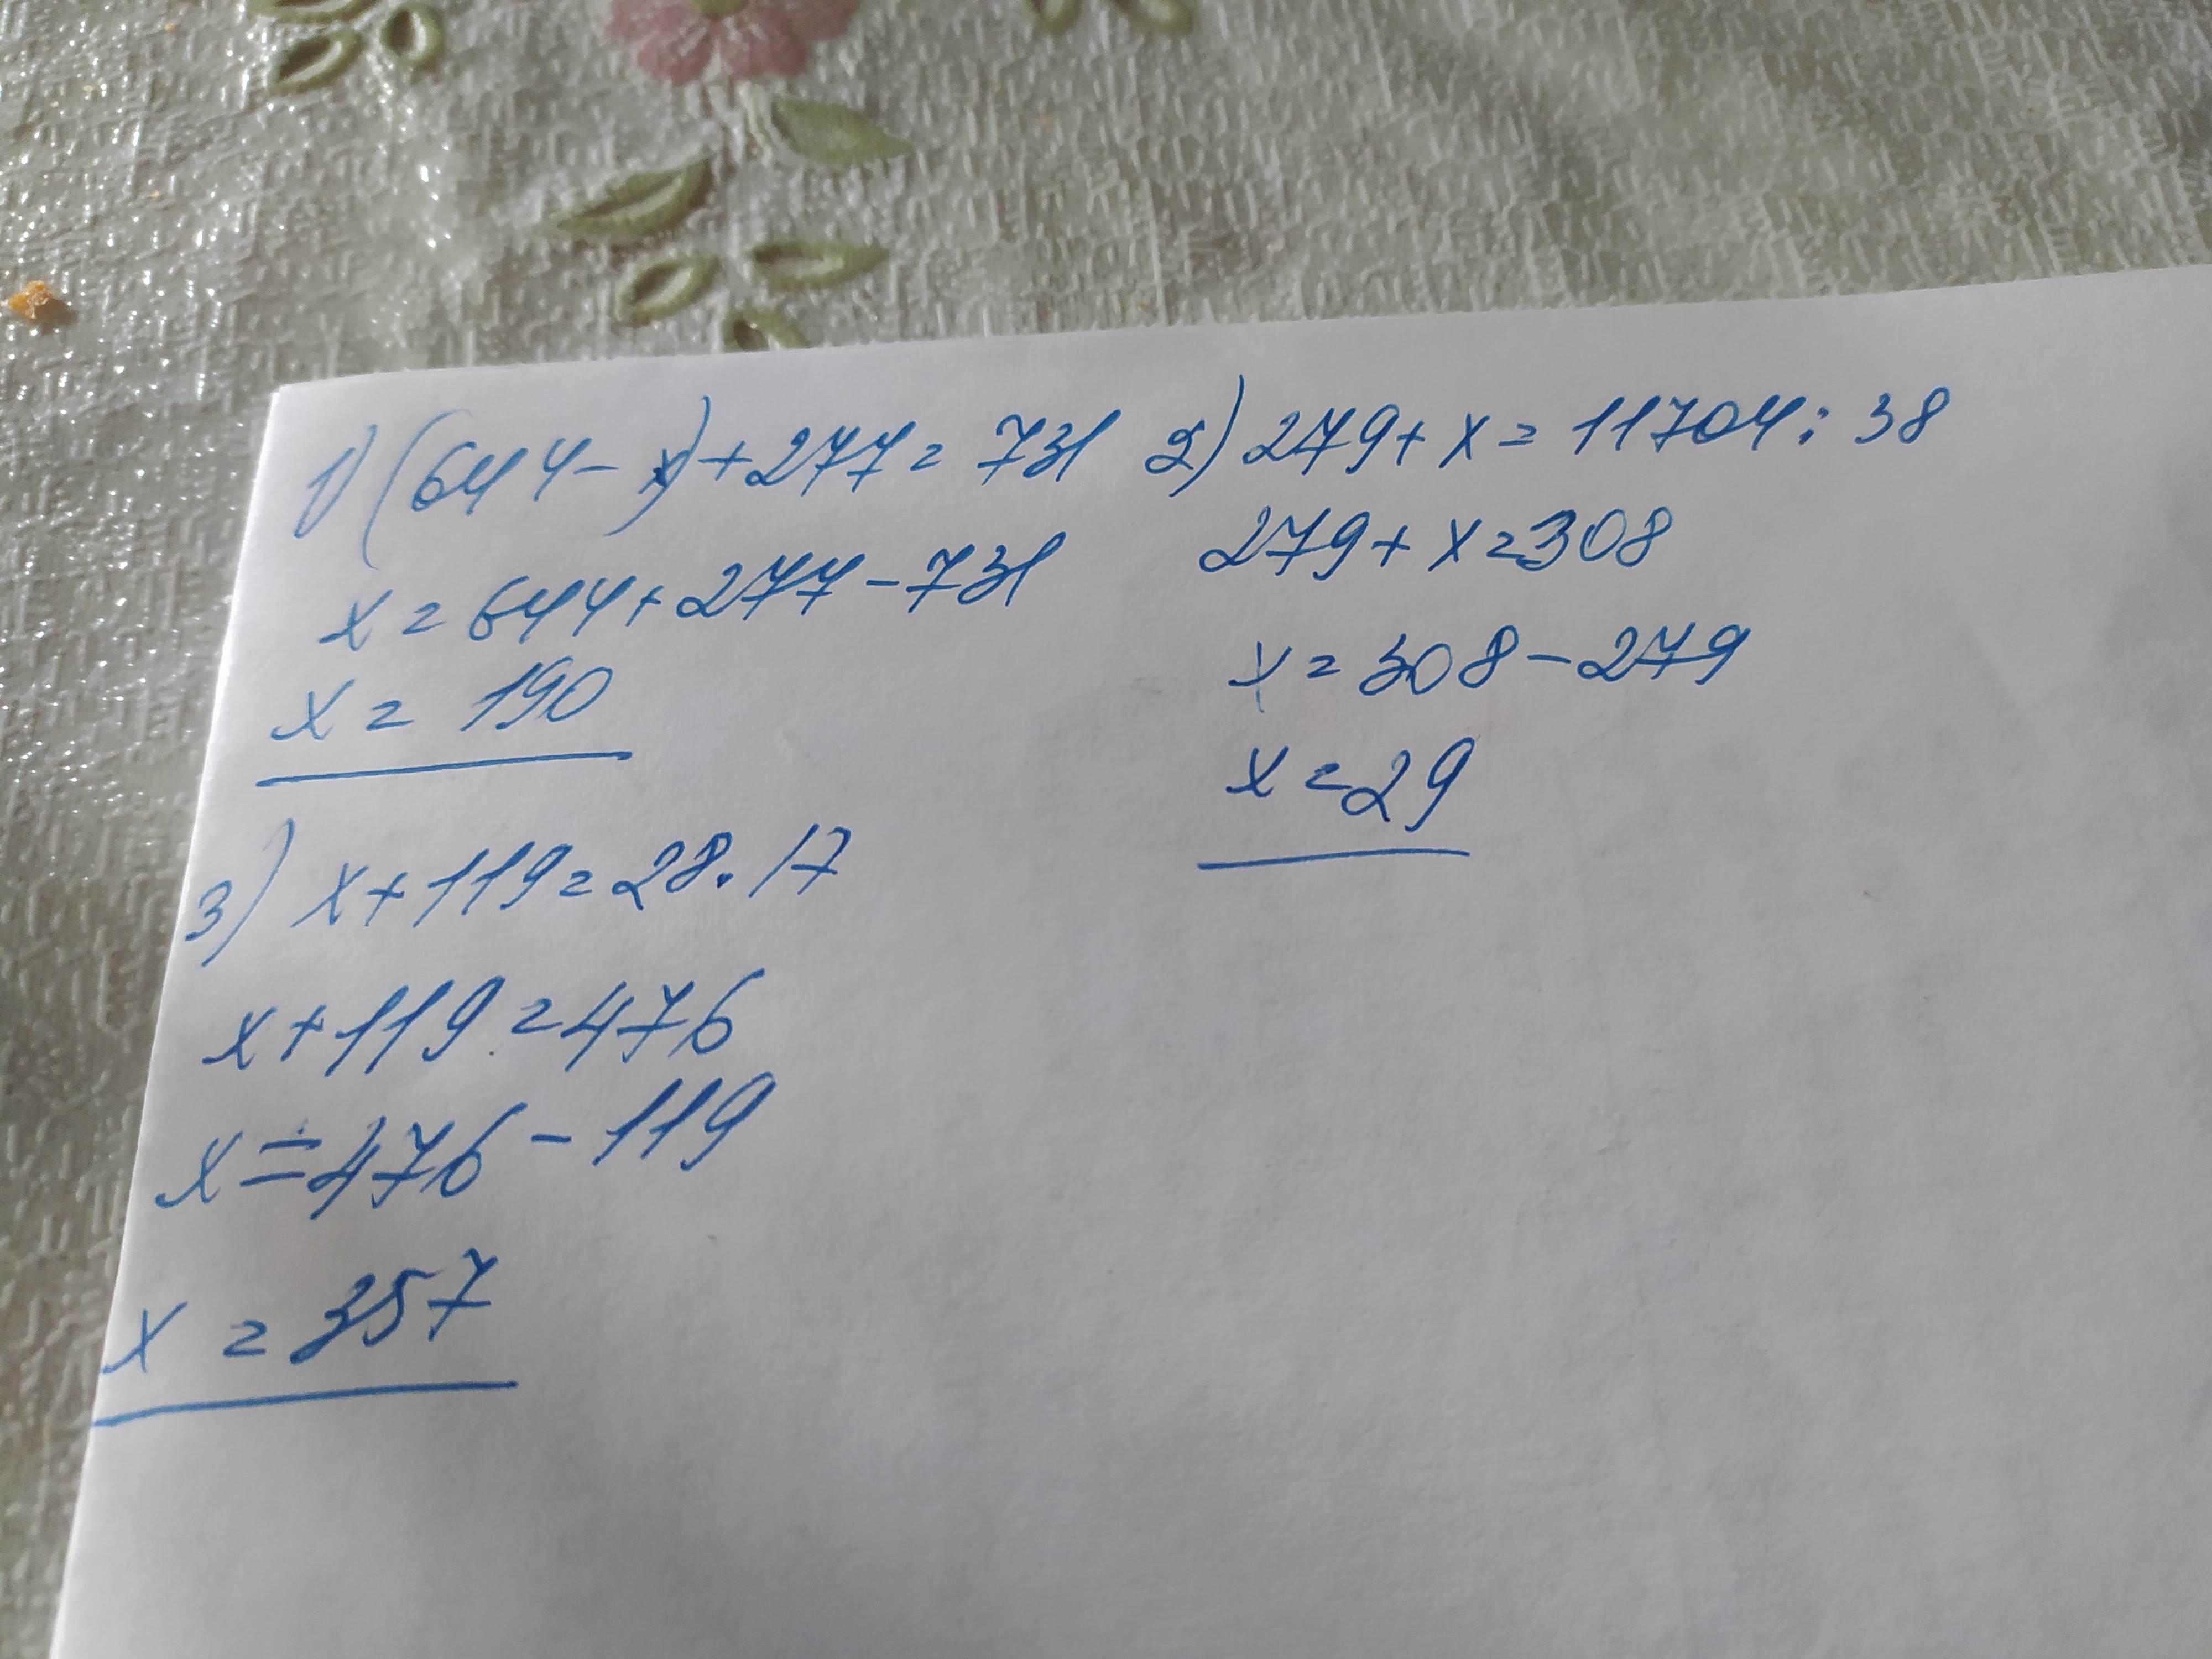 1) (644 - x) + 277 = 731
x = 644 + 277 - 731
x = 190
2) 279 + x = 11704 : 38
279 + x = 308
x = 308 - 279
x = 29
3) x + 119 = 28 · 17
x + 119 = 476
x = 476 - 119
x = 357